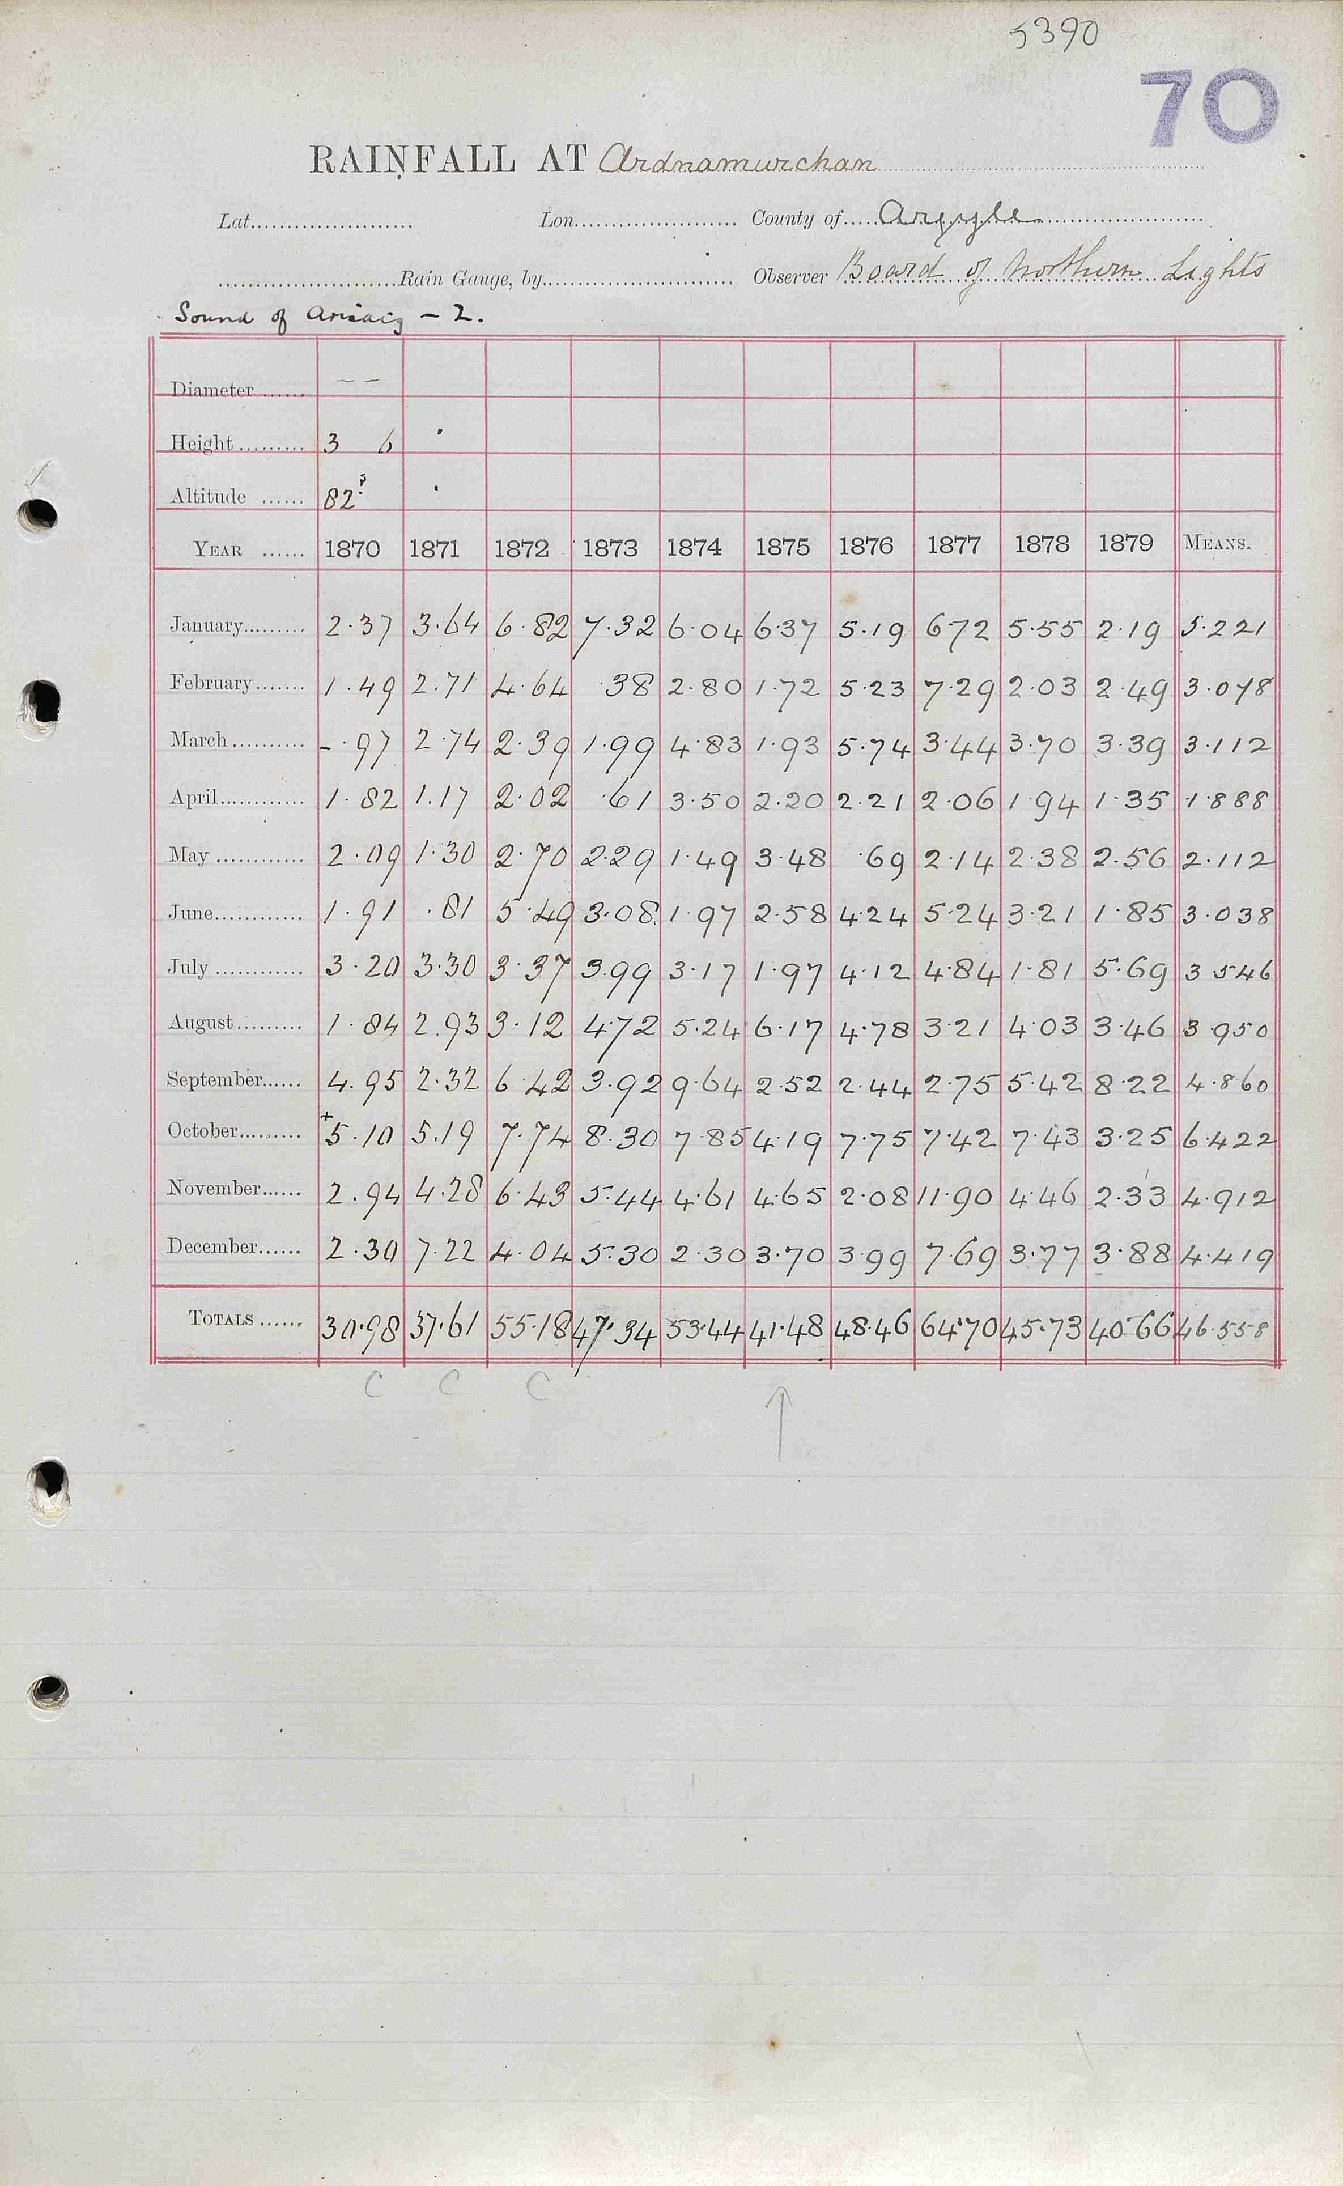 5390
70
RAINFALL AT Ardnamurchan
Lat. Lon. County of Argyle
Rain Gauge, by Observer Board of Northern Lights
Sound of Arisaig – 2.
Diameter – –
Height 3 6
Altitude 82?
YEAR 1870 1871 1872 1873 1874 1875 1876 1877 1878 1879 MEANS.
January 2.37 3.64 6.82 7.32 6.04 6.37 5.19 6.72 5.55 2.19 5.221
February 1.49 2.71 4.64 .38 2.80 1.72 5.23 7.29 2.03 2.49 3.078
March -.97 2.74 2.39 1.99 4.83 1.93 5.74 3.44 3.70 3.39 3.112
April 1.82 1.17 2.02 .61 3.50 2.20 2.21 2.06 1.94 1.35 1.888
May 2.09 1.30 2.70 2.29 1.49 3.48 .69 2.14 2.38 2.56 2.112
June 1.91 .81 5.49 3.08 1.97 2.58 4.24 5.24 3.21 1.85 3.038
July 3.20 3.30 3.37 3.99 3.17 1.97 4.12 4.84 1.81 5.69 3.546
August 1.84 2.93 3.12 4.72 5.24 6.17 4.78 3.21 4.03 3.46 3.950
September 4.95 2.32 6.42 3.92 9.64 2.52 2.44 2.75 5.42 8.22 4.860
October +5.10 5.19 7.74 8.30 7.85 4.19 7.75 7.42 7.43 3.25 6.422
November 2.94 4.28 6.43 5.44 4.61 4.65 2.08 11.90 4.46 2.33 4.912
December 2.30 7.22 4.04 5.30 2.30 3.70 3.99 7.69 3.77 3.88 4.419
TOTALS 30.98 37.61 55.18 47.34 53.44 41.48 48.46 64.70 45.73 40.66 46.558
C C C